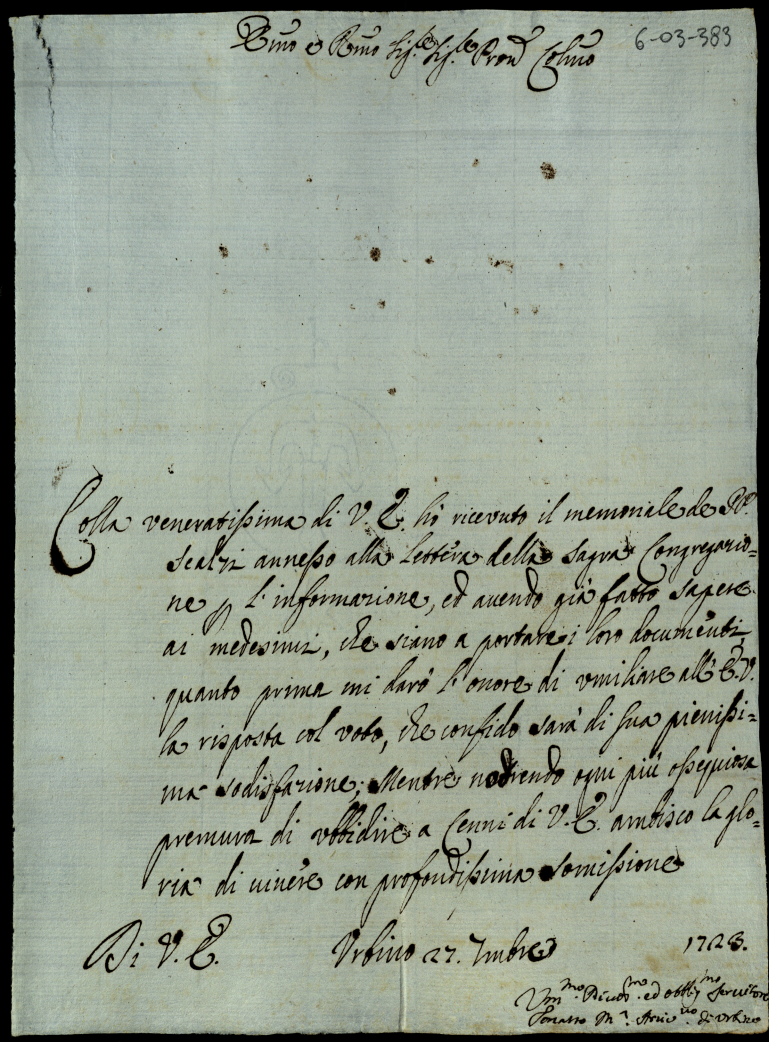 Emo e Rmo Sig.re Sig.re Pron Colmo
6-03-383
Colla veneratissima di V. E. hò ricevuto il memoriale de PP.
Scalzi annesso alla lettera della Sagra Congregazio=
ne p l'informazione, ed avendo già fatto sapere
ai medesimi, che siano a portare i loro documenti,
quanto prima mi darò l'onore di umiliare all'E. V.
la risposta col voto, che confido sarà di sua pienissi=
ma sodisfazione; Mentre nodrendo ogni più ossequiosa
premura di ubbidire a Cenni di V. E. ambisco la glo=
ria di vivere con profondissima somissione
Di V. E. Urbino 27. 7mbre 1728.
Um.mo Divot.mo ed obblig.mo Servitore
Tomasso M.a Arciv.vo di Urbino